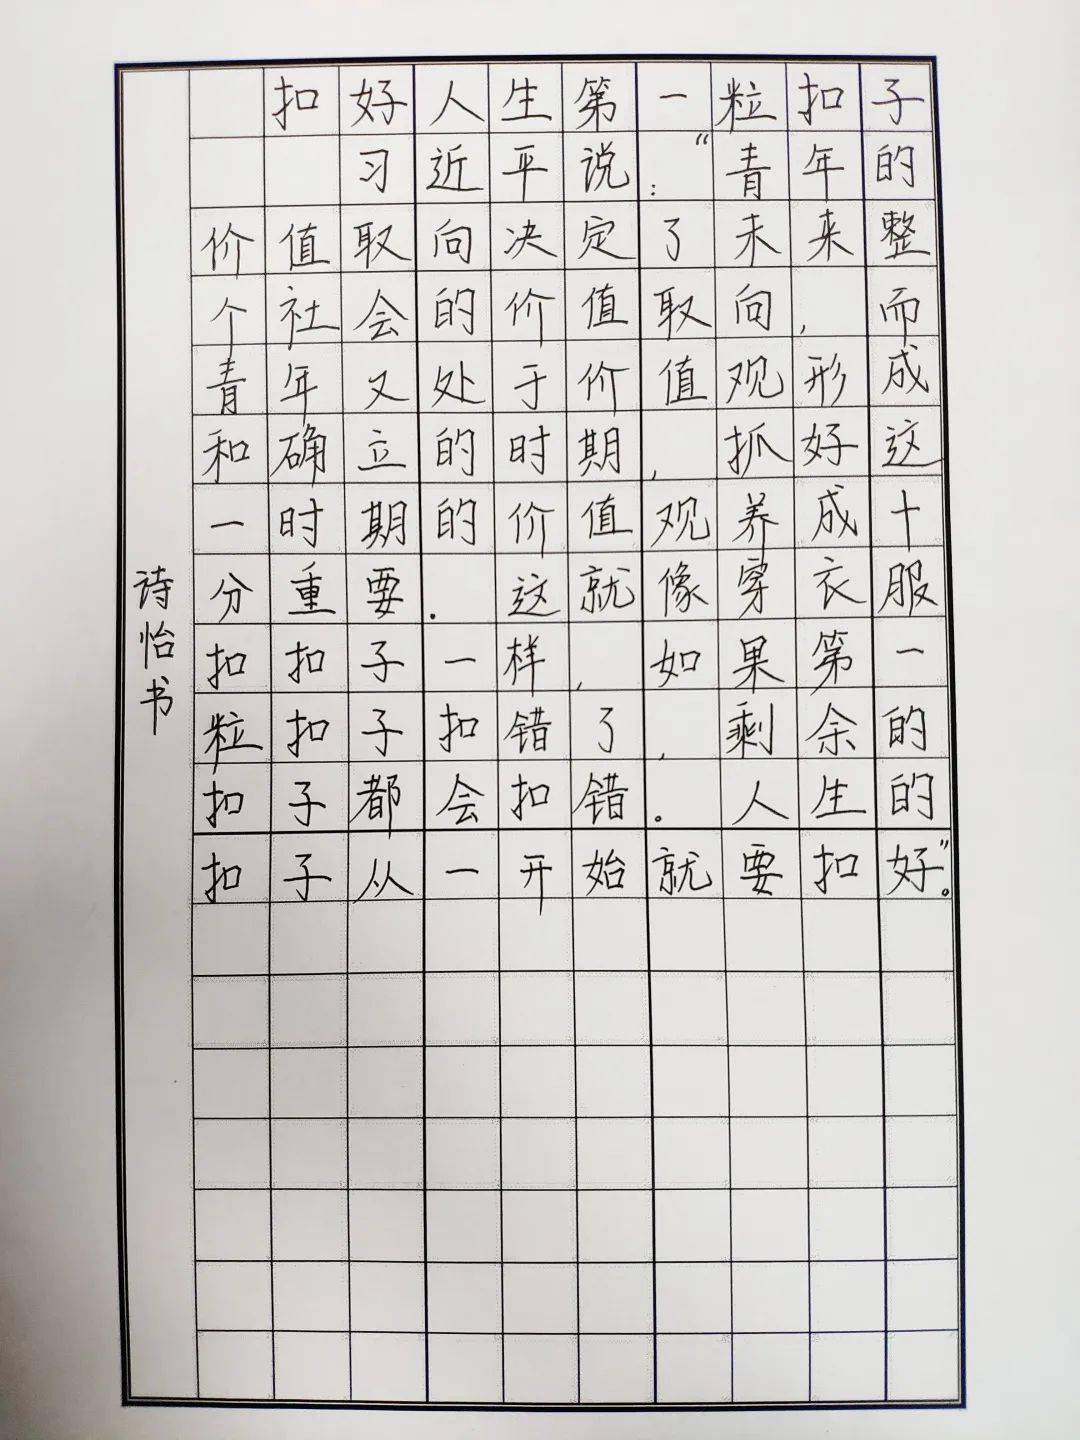 扣好人生第一粒扣子
习近平说:“青年的
价值取向决定了未来整
个社会的价值取向,而
青年又处于价值观形成
和确立的时期,抓好这
一时期的价值观养成十
分重要.这就像穿衣服
扣扣子一样,如果第一
粒扣子扣错了,剩余的
扣子都会扣错。人生的
扣子从一开始就要扣好”。
诗怡书